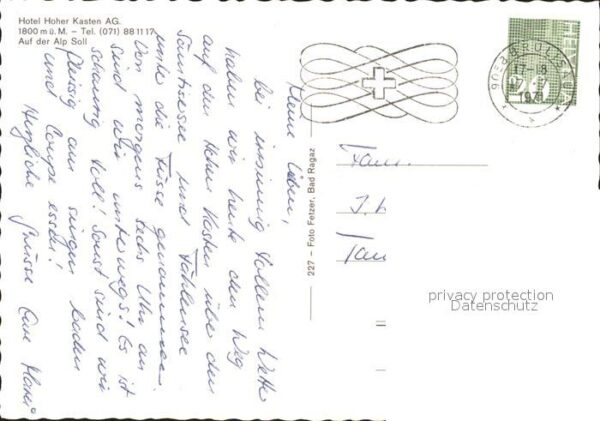 Hotel Hoher Kasten AG.
1800 m ü. M. – Tel. (071) 88 11 17
Auf der Alp Soll
Meine Lieben,
bei sinnig tollem Wette
haben wir heute den Weg
auf den Hohen Kasten über den
Sämtisersee und Fählensee
unter die Füsse genommen.
Von morgens sechs Uhr an
sind wir unterwegs! Es ist
schaurig toll! Sonst sind wir
fleissig am singen baden
und Coupe essen!
Herzliche Grüsse Eure
227 – Foto Fetzer, Bad Ragaz
HELVETIA
20
17-18
1971
privacy protection
Datenschutz